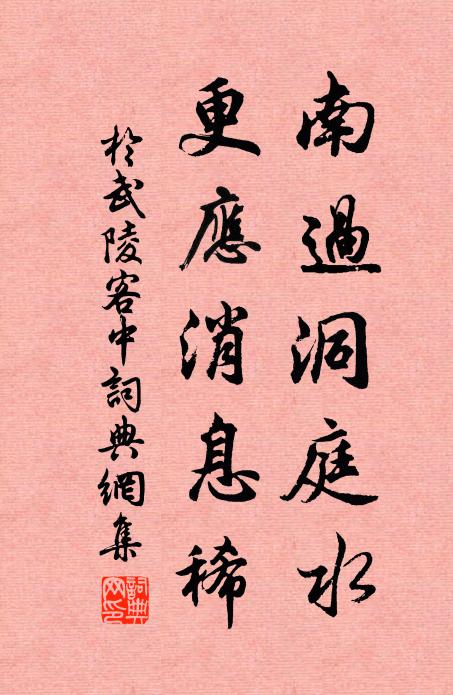 南過洞庭水
更應消息稀
於武陵客中詞典網集
詞典网印